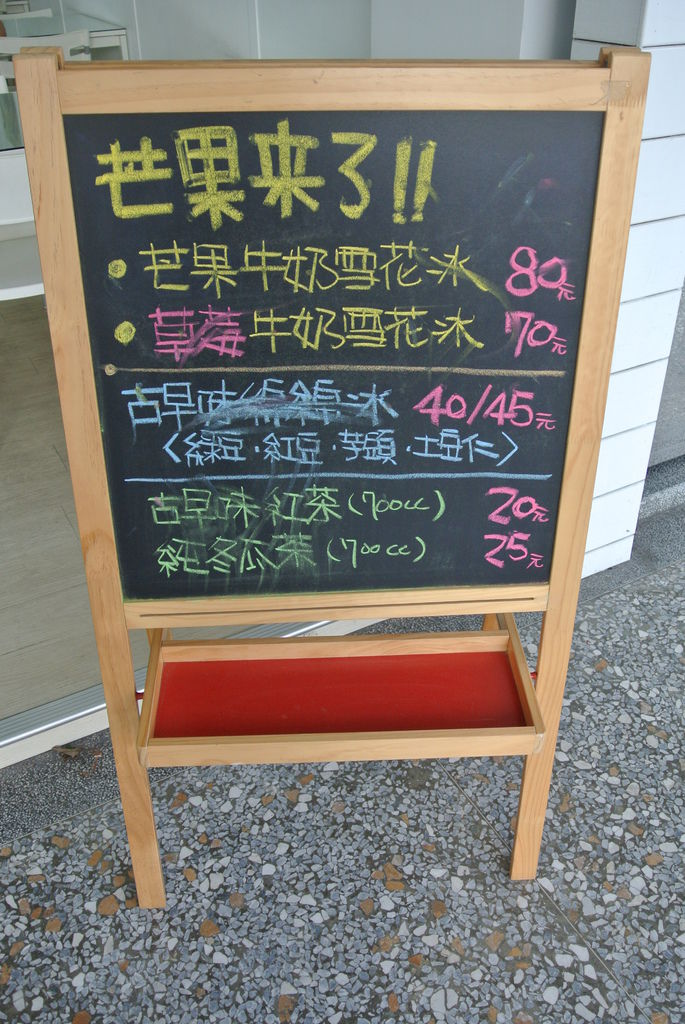 芒果来了!!
• 芒果牛奶雪花冰 80元
• 草莓牛奶雪花冰 70元
古早味綿綿冰 40/45元
〈綠豆·紅豆·芋頭·土豆仁〉
古早味紅茶(700cc) 20元
純冬瓜茶(700cc) 25元